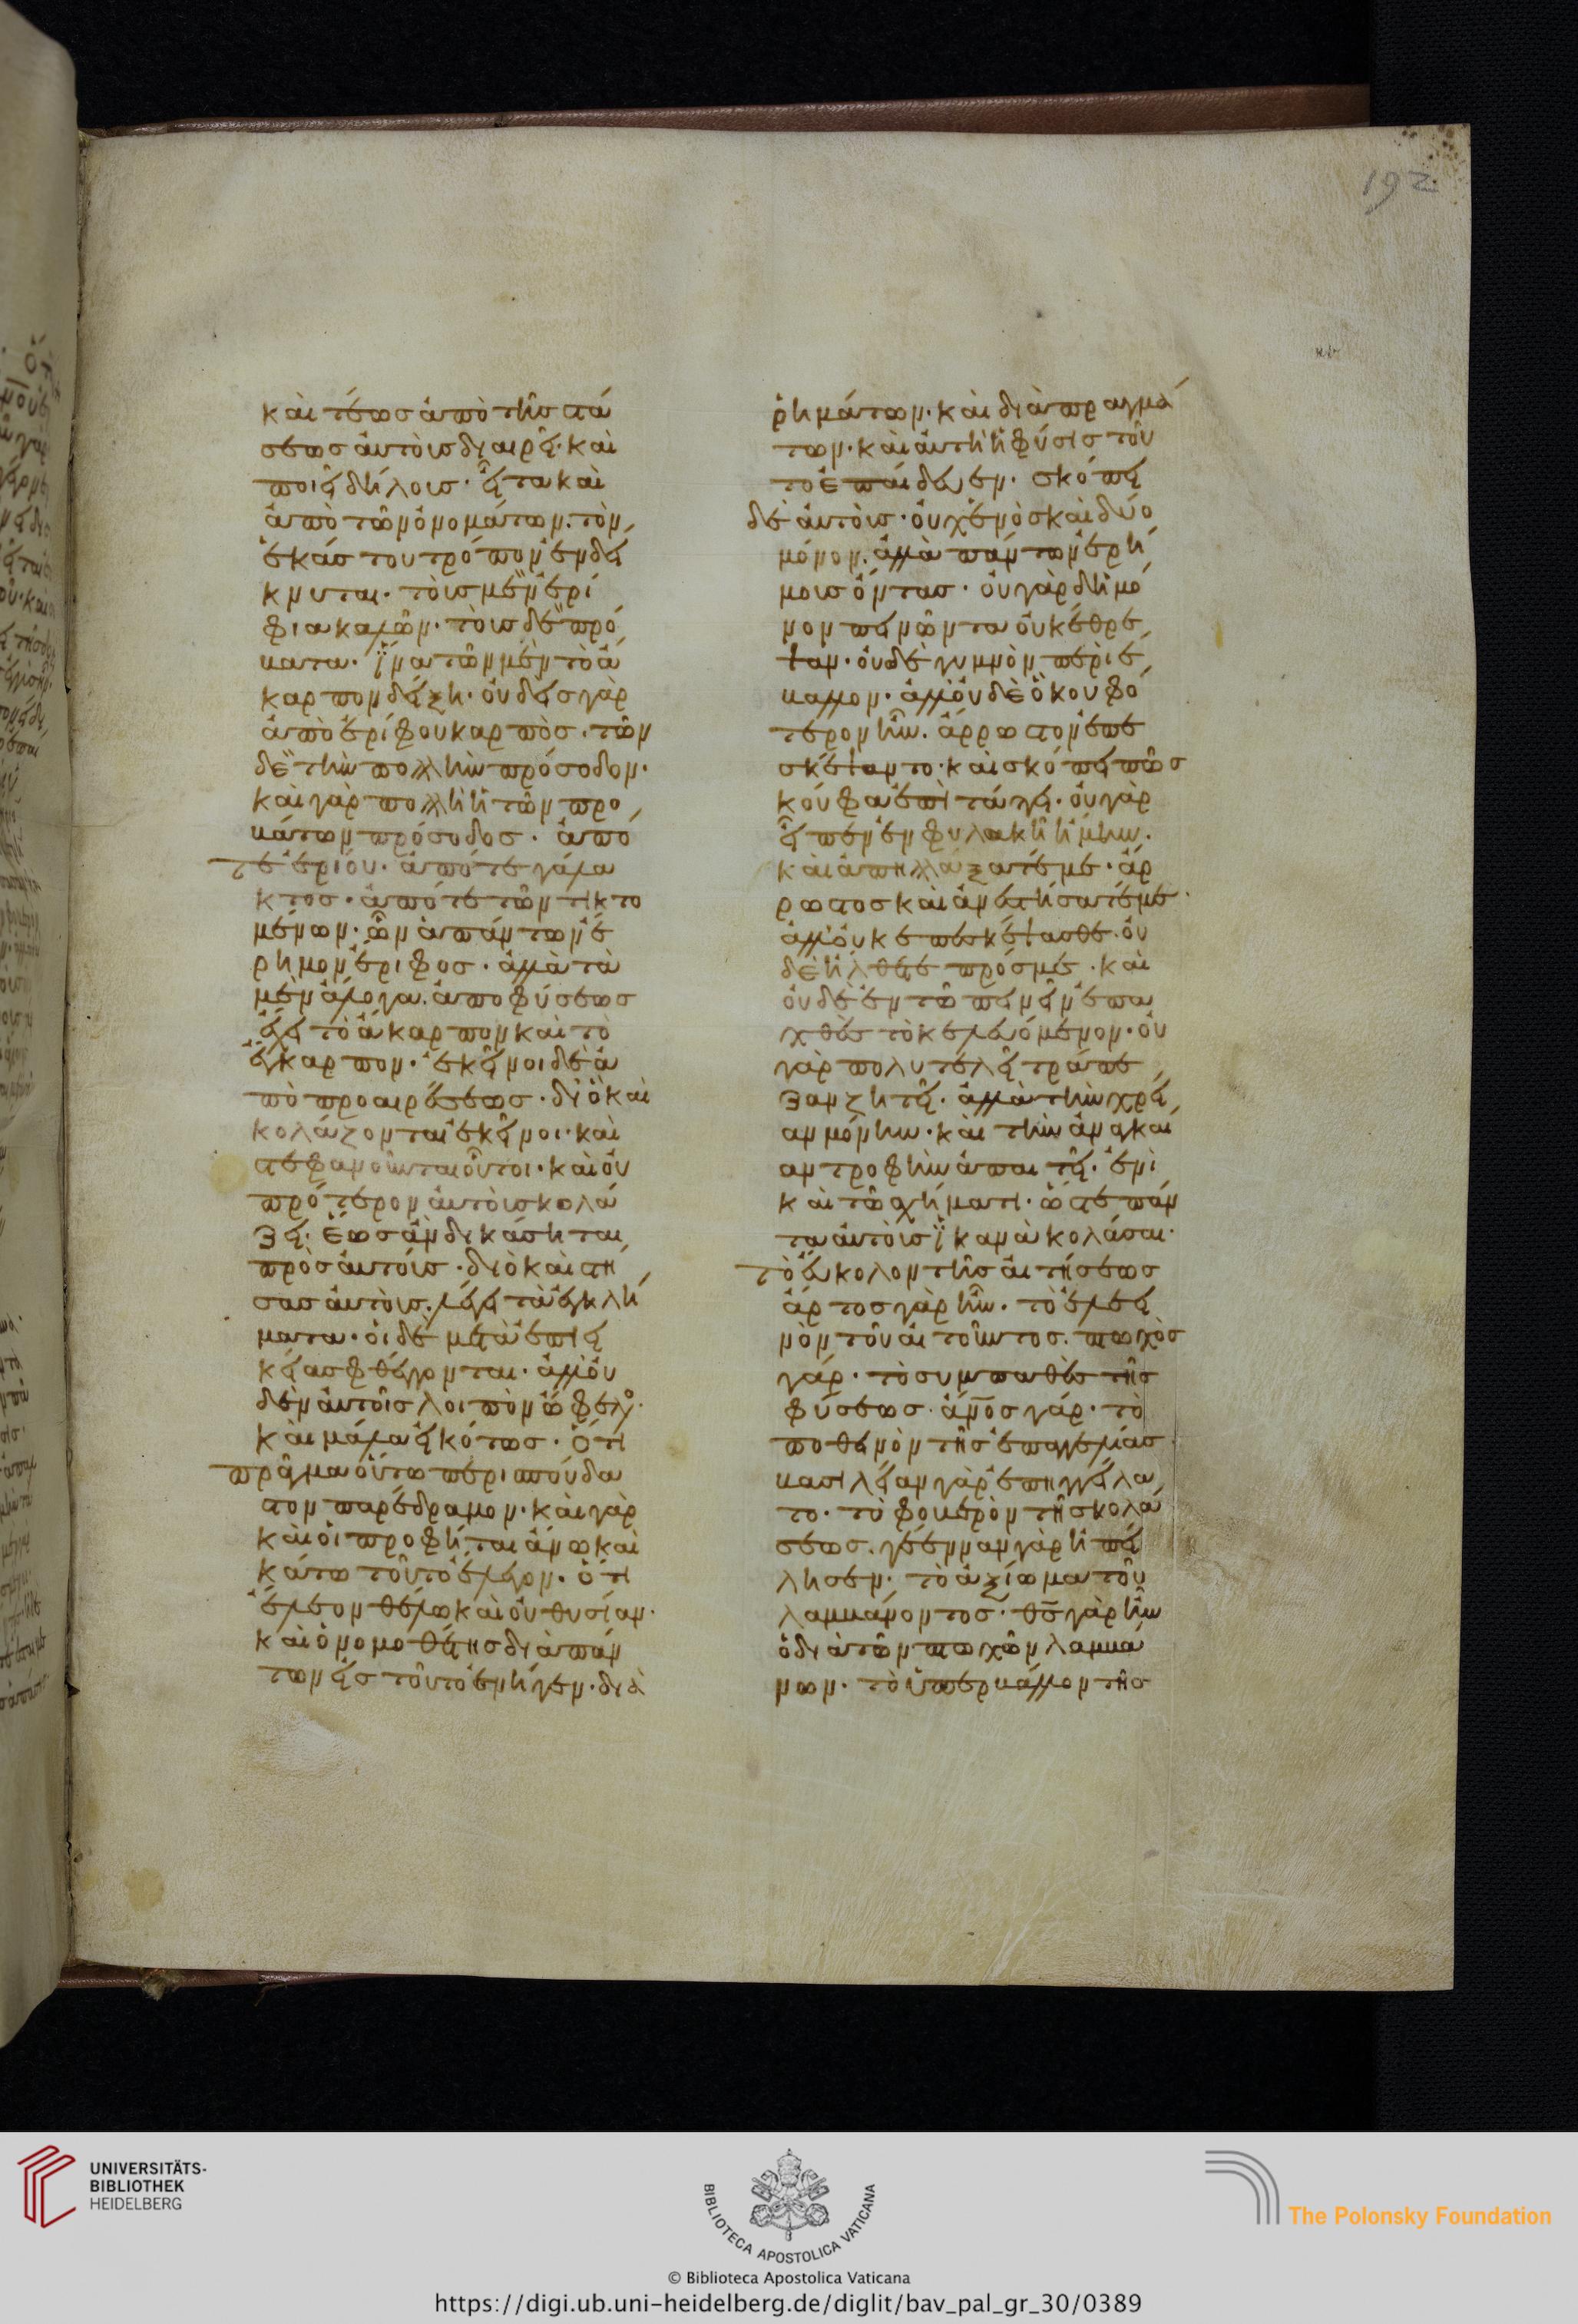 192
καὶ τέως ἀπὸ τῆς στά
σεως αὐτοὺς διαιρεῖ· καὶ
ποιεῖ δήλους· εἶτα καὶ
ἀπὸ τῶν ὀνομάτων· τὸν
ἑκάστου τρόπον ἐνδεί
κνυται· τοὺς μὲν ἐρί
φια καλῶν· τοὺς δὲ πρό
βατα· ἵνα τῶν μὲν τὸ ἄ
καρπον δείξη· οὐδεὶς γὰρ
ἀπὸ ἐρίφου καρπὸς· τῶν
δὲ τὴν πολλὴν πρόσοδον·
καὶ γὰρ πολλὴ ἡ τῶν προ
βάτων πρόσοδος· ἀπό
τε ἐρίου· ἀπό τε γάλα
κτος· ἀπό τε τῶν τικτο
μένων· ὧν ἁπάντων ἔ
ρημον ἔριφος· ἀλλὰ τὰ
μὲν ἄλογα· ἀπὸ φύσεως
ἔχει τὸ ἄκαρπον καὶ τὸ
ἔγκαρπον· ἐκεῖνοι δὲ ἀ
πὸ προαιρέσεως· διὸ καὶ
κολάζονται ἐκεῖνοι· καὶ
στεφανοῦνται οὗτοι· καὶ οὐ
πρότερον αὐτοὺς κολά
ζει· ἕως ἂν δικάσηται
πρὸς αὐτούς· διὸ καὶ στή
σας αὐτοὺς· λέγει τὰ ἐγκλή
ματα· οἱ δὲ μετὰ ἐπιει
κείας φθέγγονται· ἀλλ' οὐ
δὲν αὐτοῖς λοιπὸν ὄφελος·
καὶ μάλα εἰκότως· ὅτι
πρᾶγμα οὕτω περισπούδα
στον παρέδραμον· καὶ γὰρ
καὶ οἱ προφῆται ἄνω καὶ
κάτω τοῦτο ἔλεγον· ὅτι
ἔλεον θέλω καὶ οὐ θυσίαν·
καὶ ὁ νομοθέτης διὰ πάν
των εἰς τοῦτο ἐνῆγεν· διὰ
ῥημάτων· καὶ διὰ πραγμά
των· καὶ αὐτὴ ἡ φύσις τοῦ
το ἐπαίδευεν· σκόπει
δὲ αὐτοὺς· οὐχ ἑνὸς καὶ δύο
μόνον· ἀλλὰ πάντων ἐρή
μους ὄντας· οὐ γὰρ δὴ μό
νον πεινῶντα οὐκ ἔθρε
ψαν· οὐδὲ γυμνὸν περιέ
βαλλον· ἀλλ' οὐδὲ ὃ κουφό
τερον ἦν· ἄρρωστον ἐπε
σκέψαντο· καὶ σκόπει πῶς
κοῦφα ἐπιτάγει· οὐ γὰρ
εἶπεν ἐν φυλακῆ ἤμην·
καὶ ἀπηλλάξατέ με· ἄρ
ρωστος καὶ ἀνεστήσατέ με·
ἀλλ' οὐκ ἐπεσκέψασθε· οὐ
δὲ ἤλθετε πρός με· καὶ
οὐδὲ ἐν τῷ πεινῆν ἐπα
χθὲς τὸ κελευόμενον· οὐ
γὰρ πολυτελῆ τράπε
ζαν ζητεῖ· ἀλλὰ τὴν χρεί
αν μόνην· καὶ τὴν ἀναγκαί
αν τροφὴν ἀπαιτεῖ· ἐνὶ
καὶ τῷ σχήματι· ὥστε πάν
τα αὐτοὺς ἱκανὰ κολάσαι·
τὸ εὔκολον τῆς αἰτήσεως
ἄρτος γὰρ ἦν· τὸ ἐλεει
νὸν τοῦ αἰτοῦντος· πτωχὸς
γάρ· τὸ συμπαθὲς τῆς
φύσεως· ἄνος γάρ· τὸ
ποθεινὸν τῆς ἐπαγγελίας·
βασιλείαν γὰρ ἐπηγγείλα
το· τὸ φοβερὸν τῆς κολά
σεως· γέενναν γὰρ ἠπεί
λησεν· τὸ ἀξίωμα τοῦ
λαμβάνοντος· θς γὰρ ἦν
ὁ διὰ τῶν πτωχῶν λαμβά
νων· τὸ ὑπερβάλλον τῆς
UNIVERSITÄTS-
BIBLIOTHEK
HEIDELBERG
BIBLIOTECA APOSTOLICA VATICANA
The Polonsky Foundation
© Biblioteca Apostolica Vaticana
https://digi.ub.uni-heidelberg.de/diglit/bav_pal_gr_30/0389